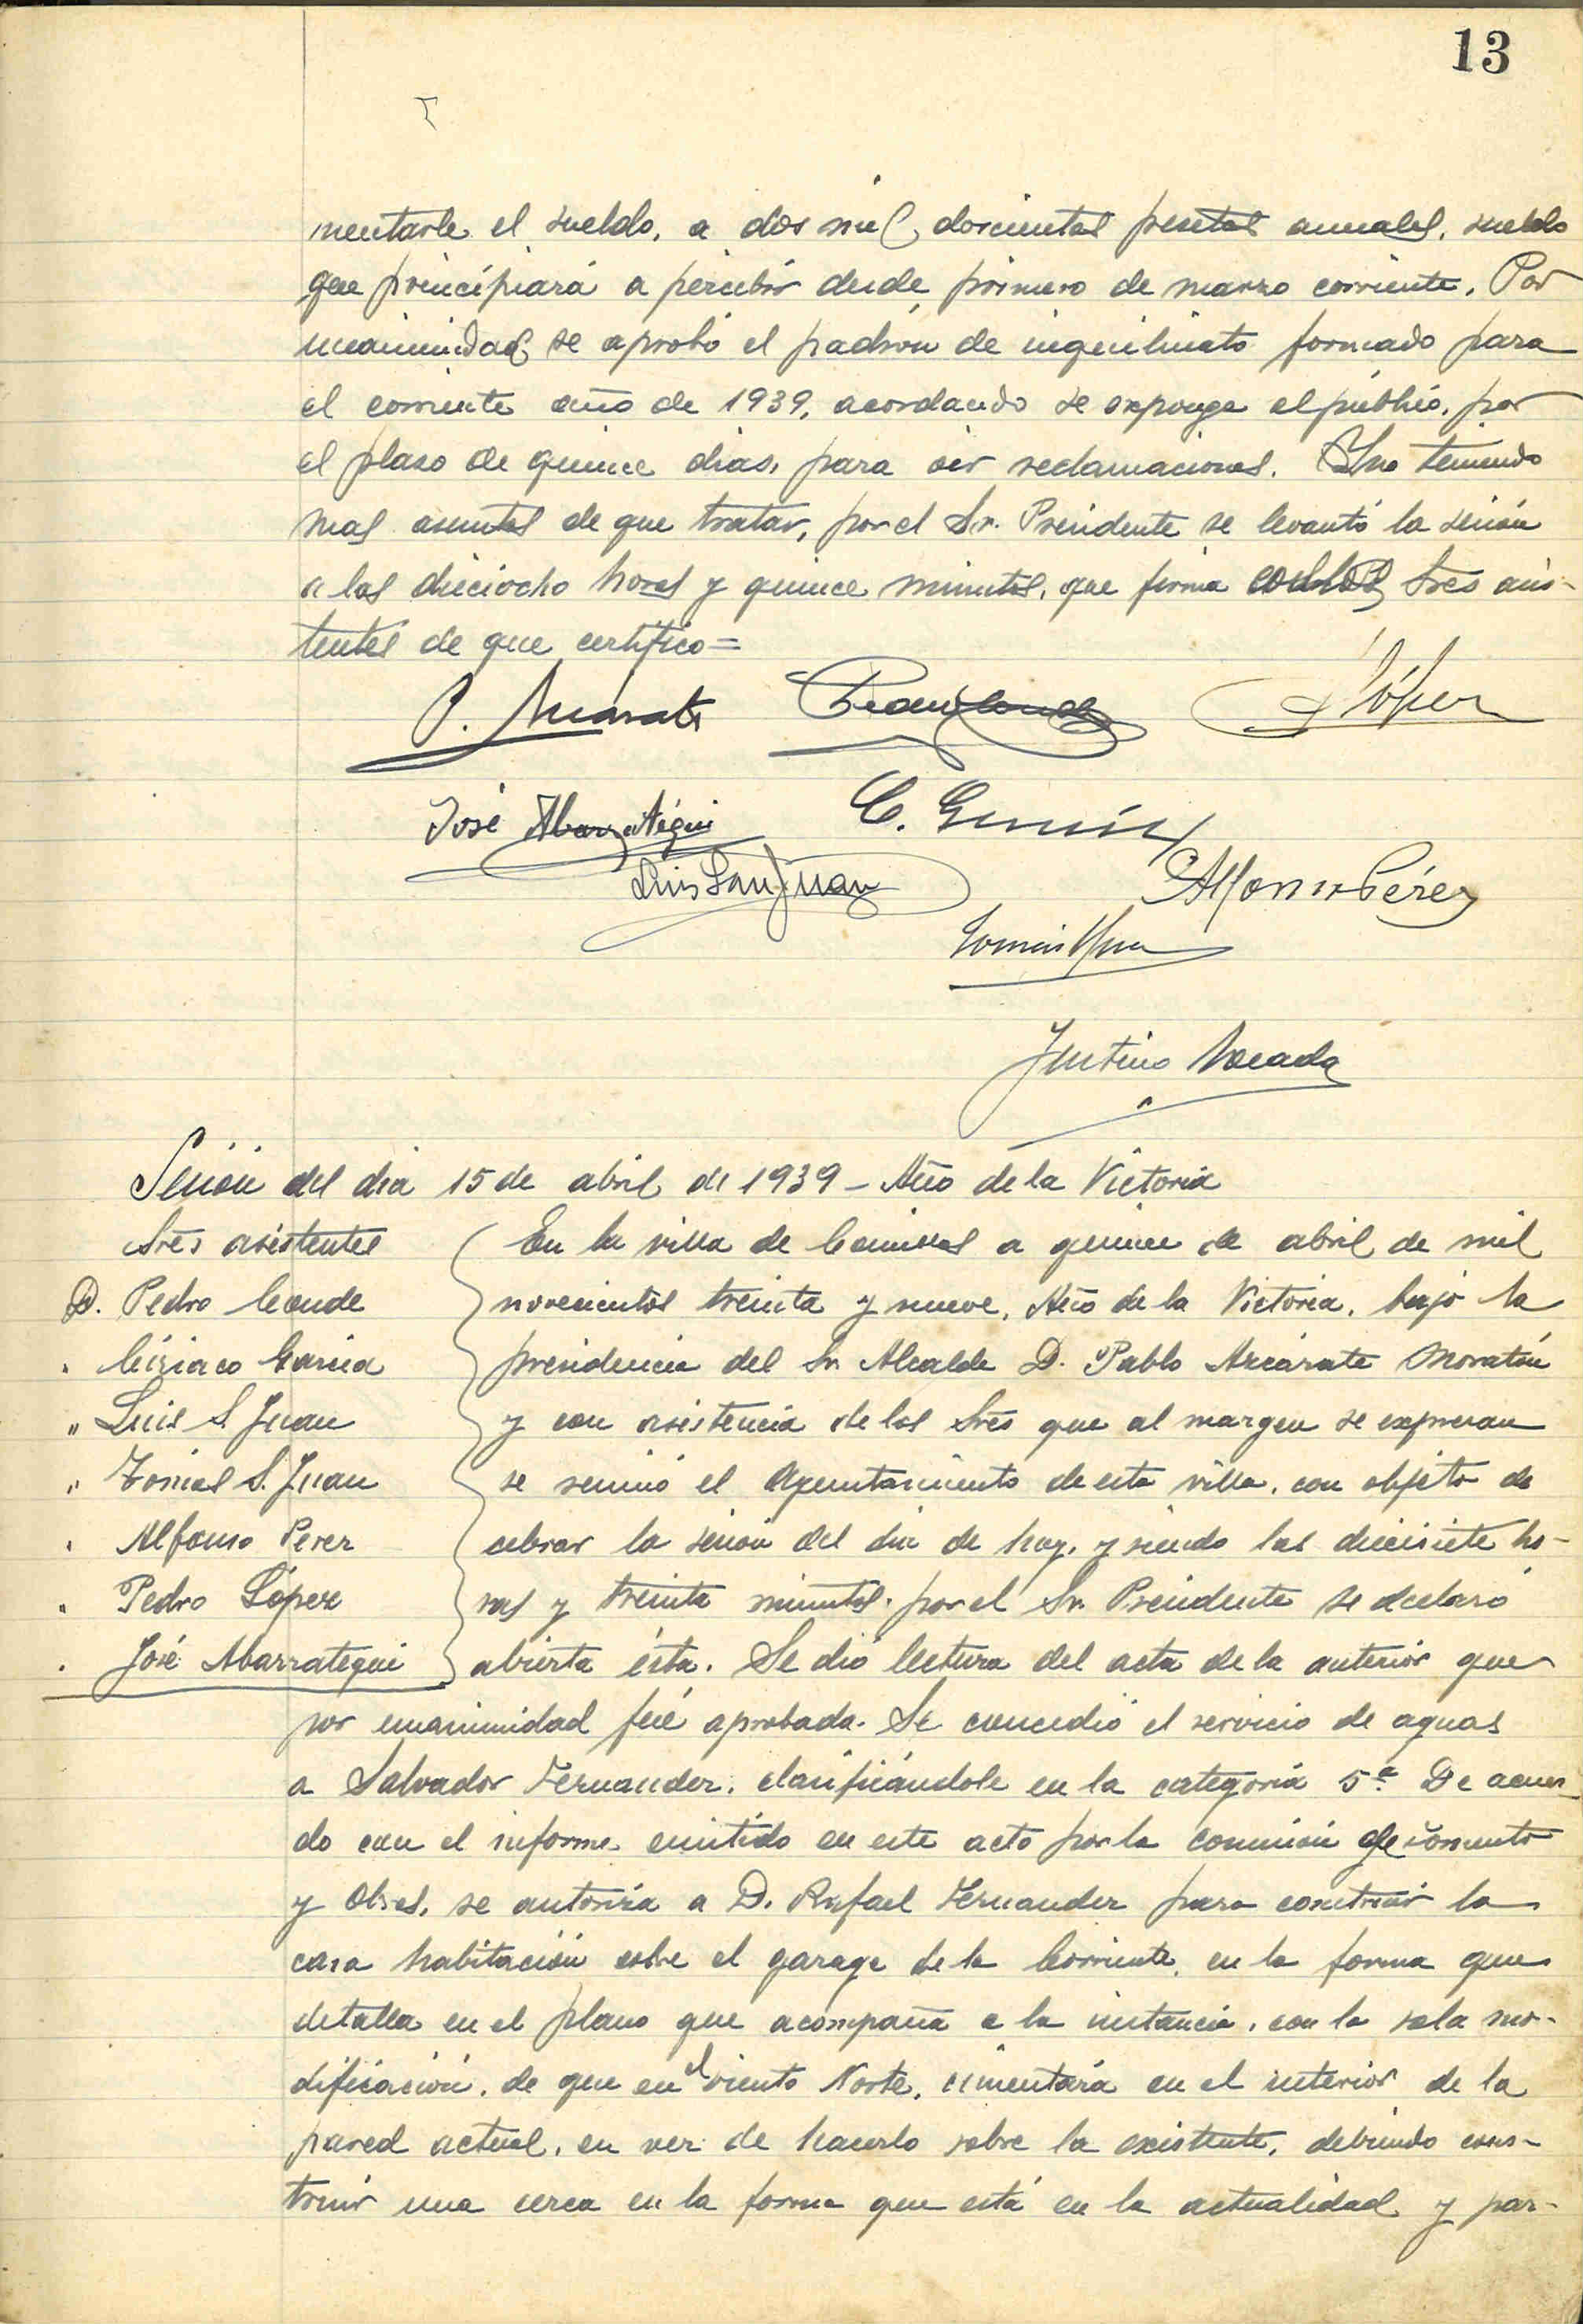 13
mentarle el sueldo, a dos mil doscientas pesetas anuales, sueldo
que principiará a percibir desde primero de marzo corriente. Por
unanimidad se aprobó el padrón de inquilinato formado para
el corriente año de 1939, acordando se exponga al público, por
el plazo de quince dias, para oir reclamaciones. Y no teniendo
mas asuntos de que tratar, por el Sr. Presidente se levantó la sesión
a las dieciocho horas y quince minutos, que firma con los Sres asis-
tentes de que certifico=
P. Azcarate
Pedro Conde
P López
José Abarrategui
C. García
Luis San Juan
Alfonso Pérez
Tomás
Justino
Sesión del dia 15 de abril de 1939 - Año de la Victoria
Sres asistentes
D. Pedro Conde
" Ciriaco Garcia
" Luis S. Juan
" Tomas S. Juan
" Alfonso Perez
" Pedro López
" José Abarrategui
En la villa de Comillas a quince de abril de mil
novecientos treinta y nueve, Año de la Victoria, bajo la
presidencia del Sr. Alcalde D. Pablo Azcárate Moratón
y con asistencia de los Sres que al margen se expresan
se reunió el Ayuntamiento de esta villa, con objeto de
cebrar la sesión del dia de hoy, y siendo las diecisiete ho-
ras y treinta minutos, por el Sr. Presidente se declaró
abierta ésta. Se dió lectura del acta de la anterior que
por unanimidad fué aprobada. Se concedió el servicio de aguas
a Salvador Fernandez, clasificándole en la categoria 5ª. De acuer-
do con el informe emitido en este acto por la comisión de Fomento
y Obras, se autoriza a D. Rafael Fernandez para construir la
casa habitación sobre el garage de la Corriente, en la forma que
detalla en el plano que acompaña a la instancia, con la sola mo-
dificación, de que en el viento Norte, cimentará en el interior de la
pared actual, en vez de hacerlo sobre la existente, debiendo cons-
truir una cerca en la forma que está en la actualidad y par-